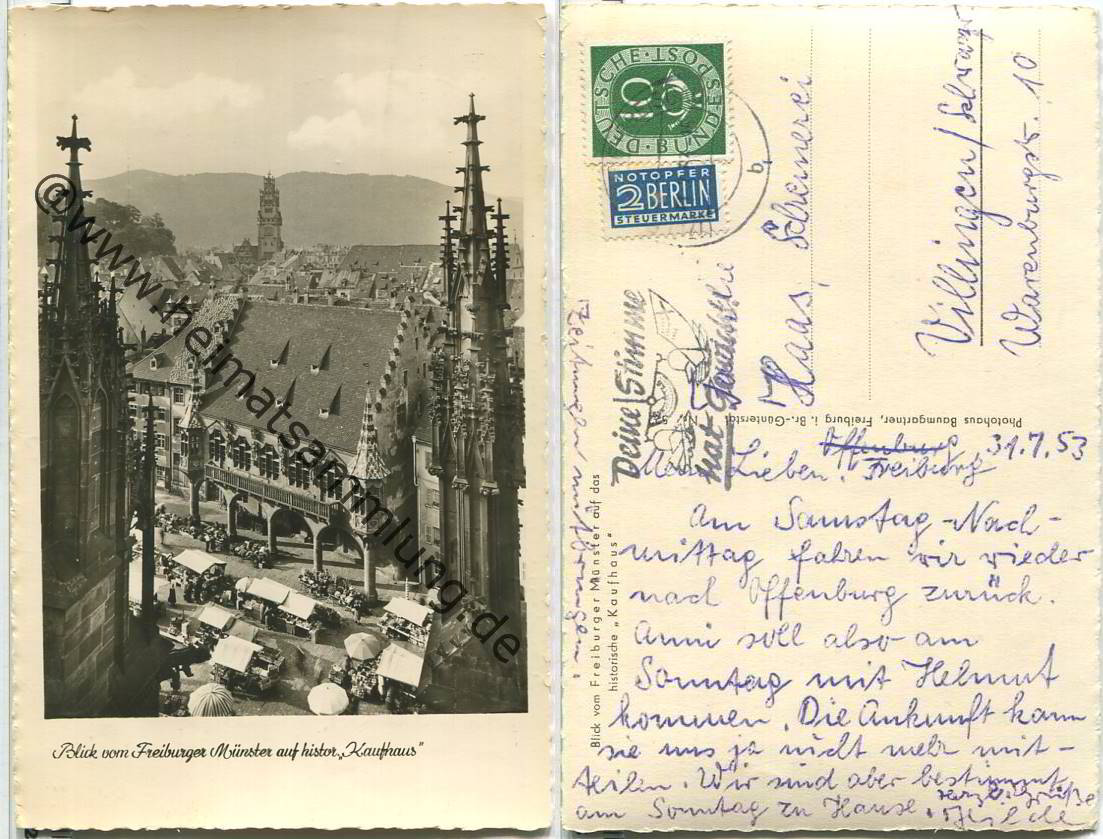 ©www.heimatsammlung.de
Blick vom Freiburger Münster auf histor. „Kaufhaus"
DEUTSCHE BUNDESPOST
10
NOTOPFER
2 BERLIN
STEUERMARKE
b
Deine Stimme
hat Gewicht
Haas, Schreinerei
Villingen/Schwarzw
Warenburgstr. 10
Photohaus Baumgartner, Freiburg i. Br.-Günterstal
Blick vom Freiburger Münster auf das
historische „Kaufhaus"
Offenburg, 31.7.53
Freiburg
Meine Lieben!
Am Samstag-Nach-
mittag fahren wir wieder
nach Offenburg zurück.
Anni soll also am
Sonntag mit Helmut
kommen. Die Ankunft kann
sie uns ja nicht mehr mit-
teilen. Wir sind aber bestimmt
am Sonntag zu Hause.
Herzl. Grüße
Hilde
mitbringen!